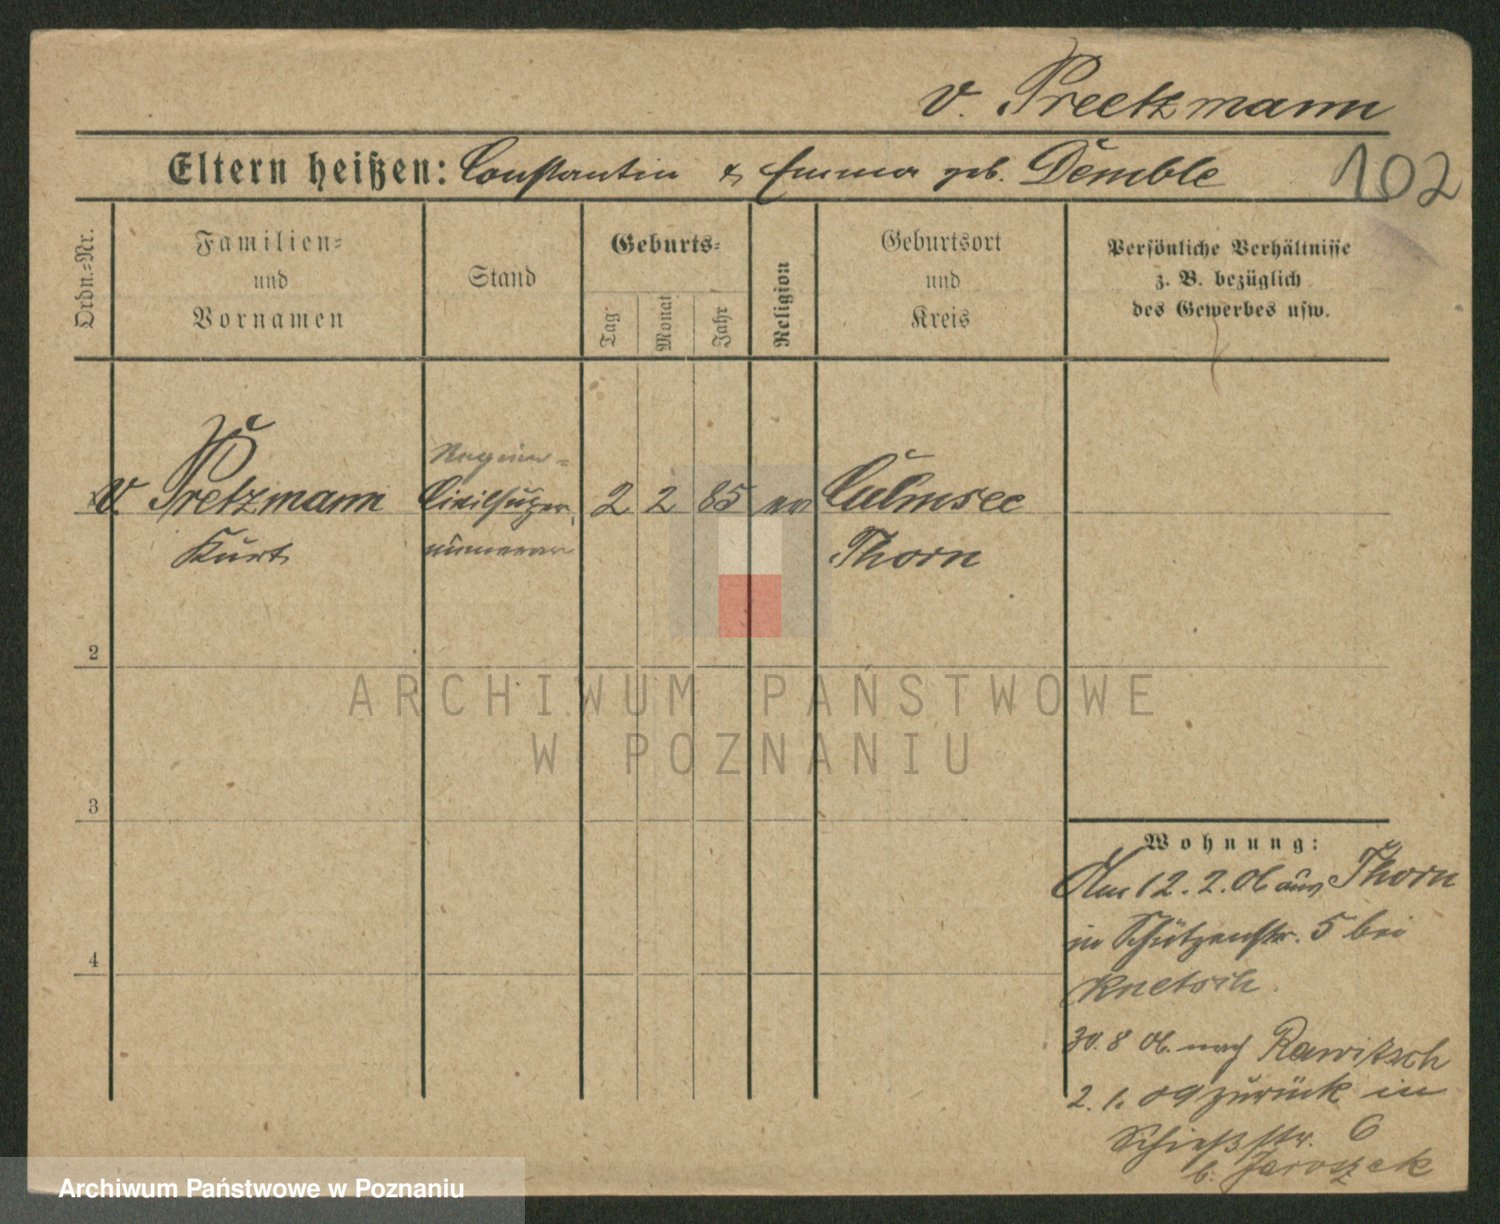 v. Preetzmann
Eltern heißen: Constantin & Emma geb. Demble
102
Ordn.=Nr.
Familien=
und
Vornamen
Stand
Geburts=
Tag
Monat
Jahr
Religion
Geburtsort
und
Kreis
Persönliche Verhältnisse
z. B. bezüglich
des Gewerbes usw.
v. Pretzmann
Kurt
Civilsuper
numerar
2 2 85 ev
Culmsee
Thorn
2
3
4
ARCHIWUM PAŃSTWOWE
W POZNANIU
Wohnung:
Am 12.2.06 aus Thorn
in Schützenstr. 5 bei
Knetsch.
30.8 06. nach Rawitsch
2.1.09 zurück in
Schießstr. 6
b. Jaroszek
Archiwum Państwowe w Poznaniu